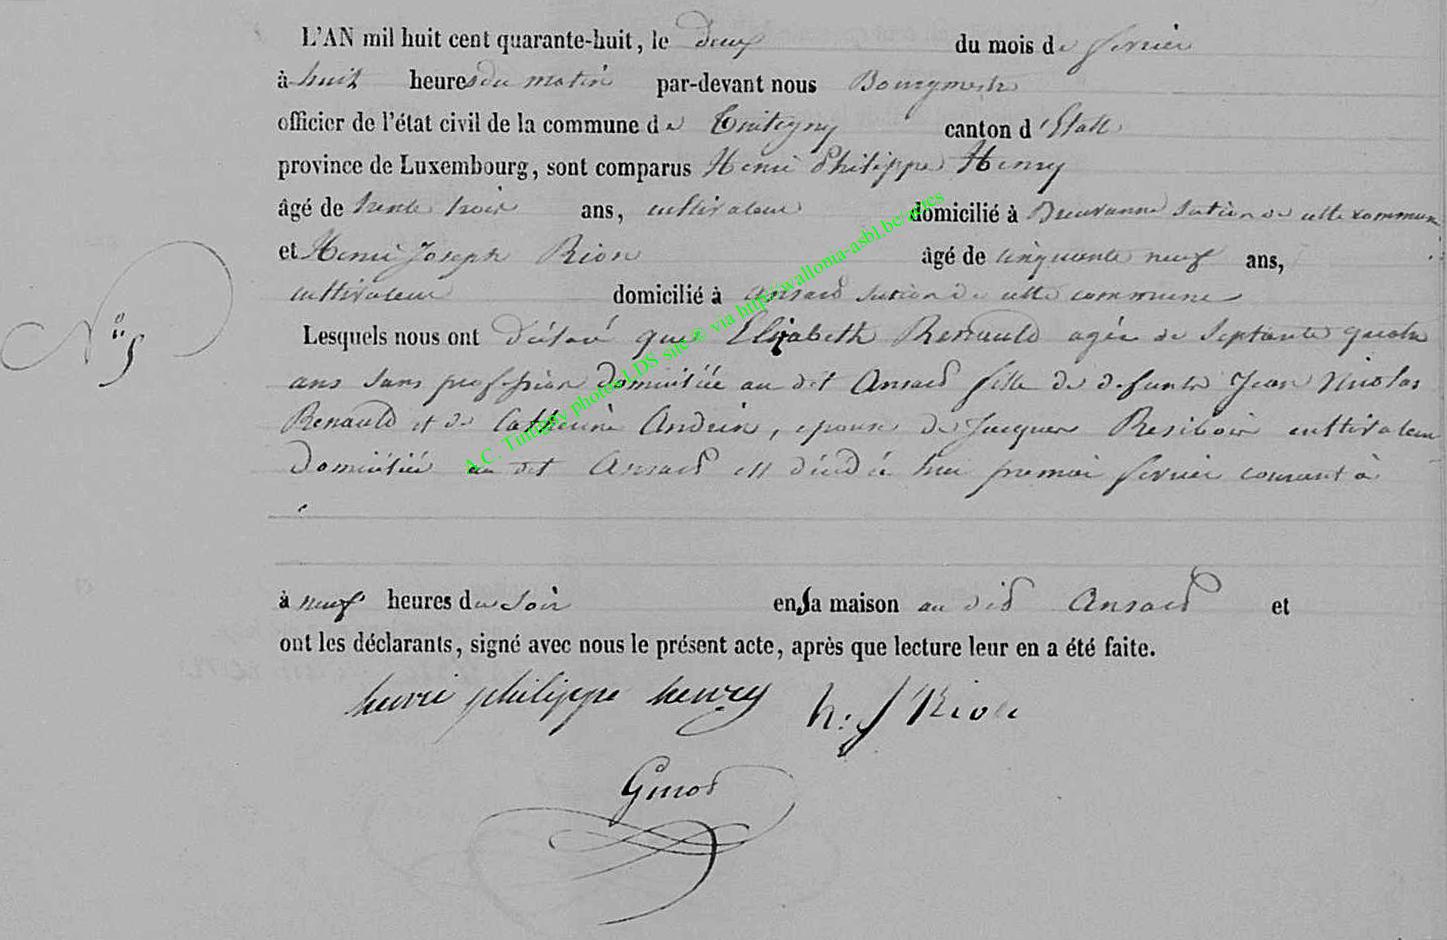 L'AN mil huit cent quarante-huit, le deux du mois de fevrier
à huit heures du matin par-devant nous Bourgmestre
officier de l'état civil de la commune de Tintigny canton d'Etalle
province de Luxembourg, sont comparus Henri Philippe Henry
âgé de trente trois ans, cultivateur domicilié à Breuvanne section de cette commune
et Henri Joseph Rion âgé de cinquante neuf ans,
cultivateur domicilié à ansard section de cette commune
N° 5
Lesquels nous ont déclaré que Elizabeth Renauld agée de septante quatre
ans sans profession domiciliée au dit Ansard fille de defunts Jean Nicolas
Renauld et de Catherine Andrin, epouse de Jacques Resibois cultivateur
domicilié au dit Ansard est décédée hier premier fevrier courant à
à neuf heures du soir en sa maison au dit Ansard et
ont les déclarants, signé avec nous le présent acte, après que lecture leur en a été faite.
henri philippe henry h: J Rion
Ginod
A.C. Tintigny photos LDS site © via http://wallonia-asbl.be/actes